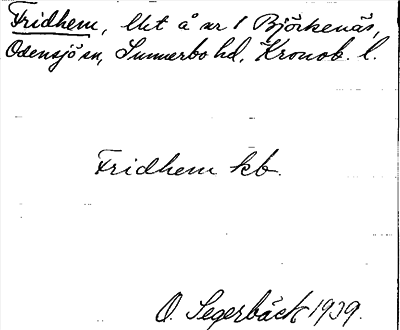 Fridhem, lht å nr 1 Björkenäs,
Odensjö sn, Sunnerbo hd, Kronob. l.
Fridhem kb.
O. Segerbäck 1939.